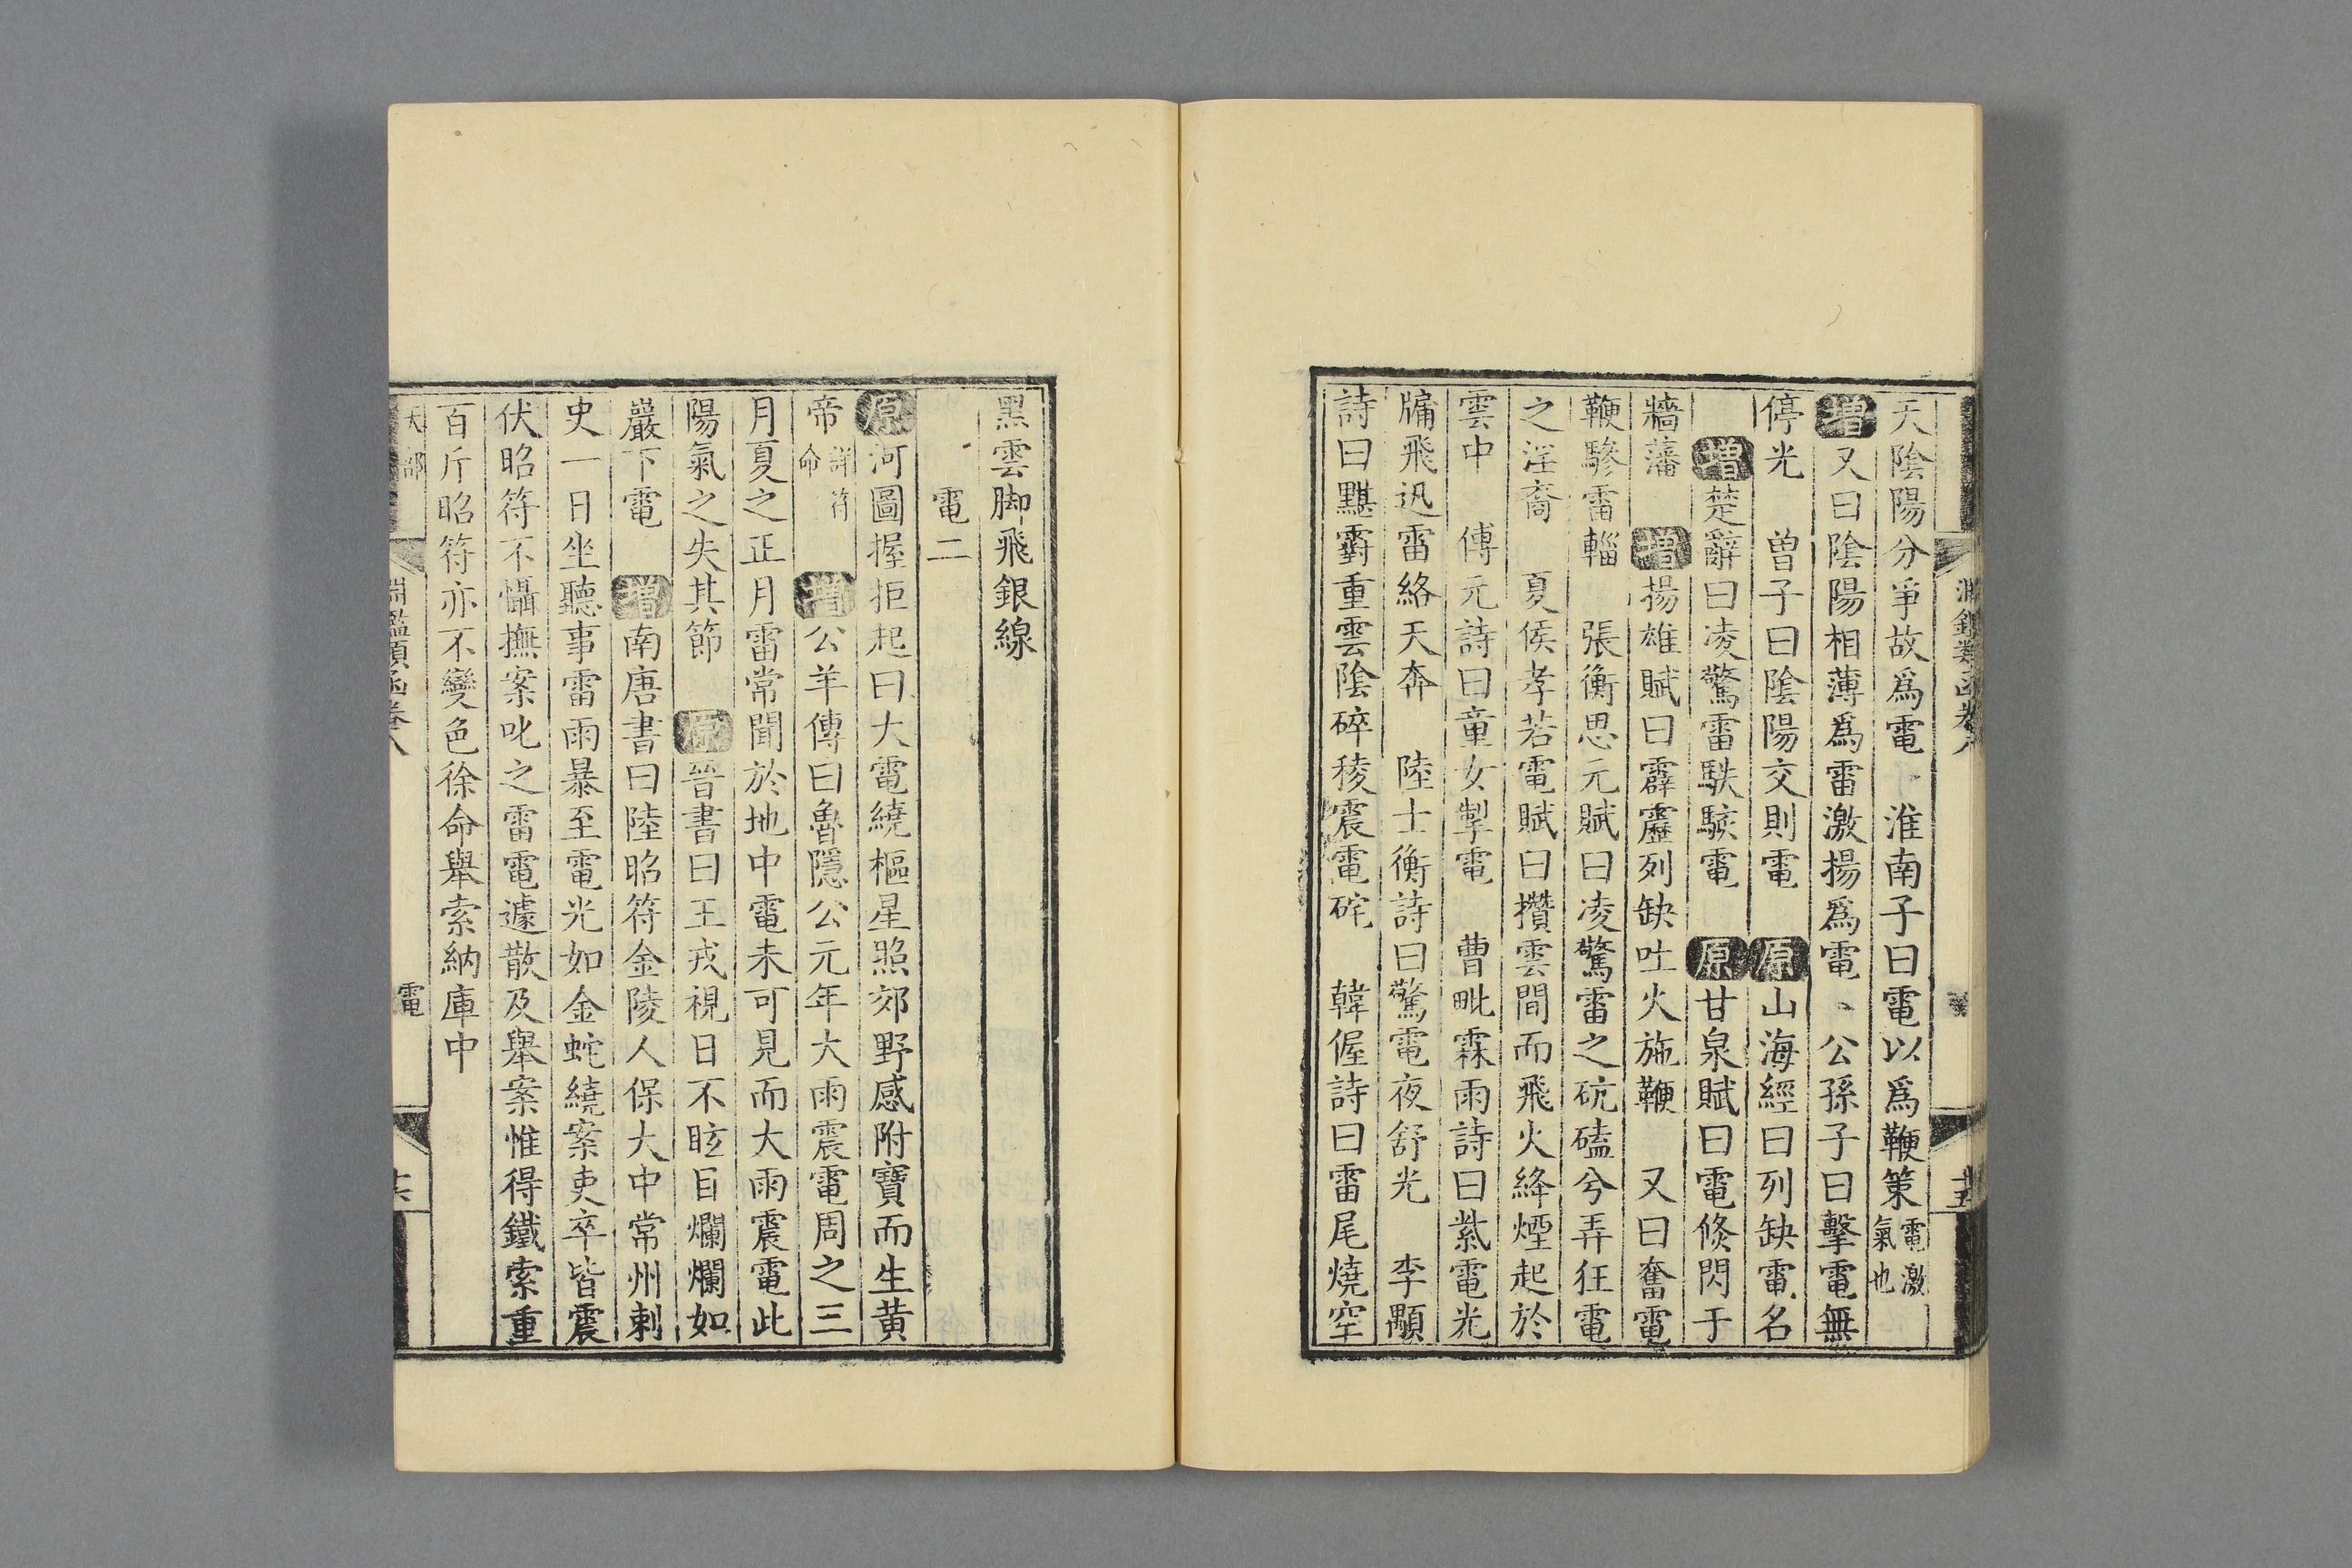 淵鑑類函卷八
天陰陽分爭故爲電　淮南子曰電以爲鞭策電激氣也
增又曰陰陽相薄爲雷激揚爲電　公孫子曰擊電無
停光　曾子曰陰陽交則電　原山海經曰列缺電名
增楚辭曰凌驚雷軼駭電　原甘泉賦曰電倐閃于
牆藩　增揚雄賦曰霹靂列缺吐火施鞭　又曰奮電
鞭驂雷輜　張衡思元賦曰凌驚雷之砊磕兮弄狂電
之淫裔　夏侯孝若電賦曰攢雲間而飛火絳煙起於
雲中　傅元詩曰童女掣電　曹毗霖雨詩曰紫電光
牖飛迅雷絡天奔　陸士衡詩曰驚電夜舒光　李顒
詩曰黮䨴重雲陰砰稜震電硡　韓偓詩曰雷尾燒空
黑雲脚飛銀線
電二
原河圖握拒起曰大電繞樞星照郊野感附寶而生黃
帝詳符命　增公羊傳曰魯隱公元年大雨震電周之三
月夏之正月雷常聞於地中電未可見而大雨震電此
陽氣之失其節　原晉書曰王戎視日不眩目爛爛如
巖下電　增南唐書曰陸昭符金陵人保大中常州刺
史一日坐聽事雷雨暴至電光如金蛇繞案吏卒皆震
伏昭符不懾撫案叱之雷電遽散及舉案惟得鐵索重
百斤昭符亦不變色徐命舉索納庫中
天部
淵鑑類函卷八
電